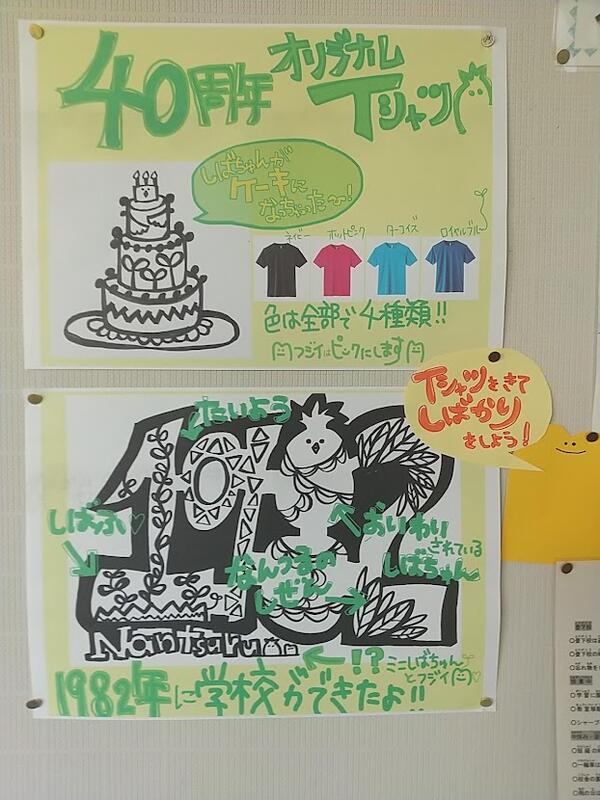 40周年
オリジナル
Tシャツ
しばちゅんが
ケーキに
なっちゃったー!
ネイビー ホットピンク ターコイズ ロイヤルブルー
色は全部で4種類!!
フジイはピンクにします
Tシャツをきて
しばかり
をしよう!
たいよう
1982
しばふ
おいわり
されている
しばちゅん
なんつるの
しぜん
Nantsuru
!?
ミニしばちゅん
とフジイ
1982年に学校ができたよ!!